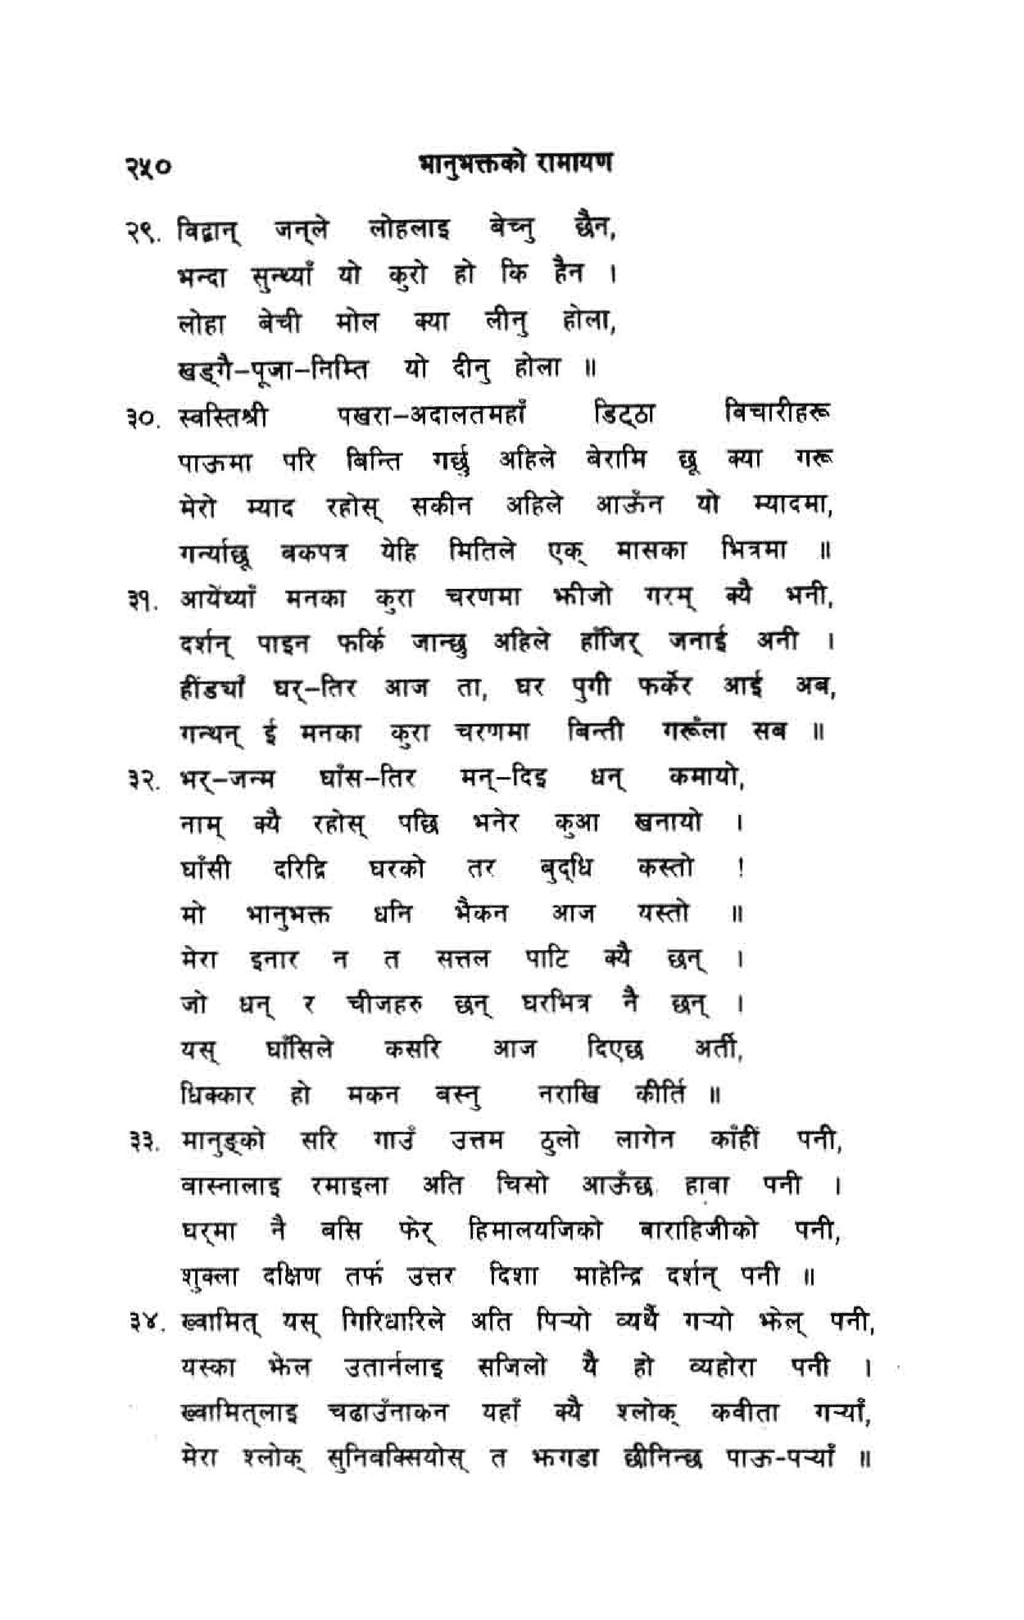 २५० भानुभक्तको रामायण
२९. विद्वान् जन्‌ले लोहलाइ बेच्नु छैन,
भन्दा सुन्थ्याँ यो कुरो हो कि हैन ।
लोहा बेची मोल क्या लीनु होला,
खड्गै–पूजा–निम्ति यो दीनु होला ॥
३०. स्वस्तिश्री पखरा–अदालतमहाँ डिट्ठा विचारीहरू
पाऊमा परि बिन्ति गर्छु अहिले बेरामि छू क्या गरू
मेरो म्याद रहोस् सकीन अहिले आऊँन यो म्यादमा,
गर्न्याछू बकपत्र येहि मितिले एक् मासका भित्रमा ॥
३१. आयेंथ्याँ मनका कुरा चरणमा झीजो गरम् क्यै भनी,
दर्शन् पाइन फर्कि जान्छु अहिले हाँजिर् जनाई अनी ।
हींड्याँ घर्–तिर आज ता, घर पुगी फर्केर आई अब,
गन्थन् ई मनका कुरा चरणमा बिन्ती गरूँला सब ॥
३२. भर्–जन्म घाँस–तिर मन्–दिइ धन् कमायो,
नाम् क्यै रहोस् पछि भनेर कुआ खनायो ।
घाँसी दरिद्रि घरको तर बुद्धि कस्तो !
मो भानुभक्त धनि भैकन आज यस्तो ॥
मेरा इनार न त सत्तल पाटि क्यै छन् ।
जो धन् र चीजहरु छन् घरभित्र नै छन् ।
यस् घाँसिले कसरि आज दिएछ अर्ती,
धिक्कार हो मकन बस्नु नराखि कीर्ति ॥
३३. मानुङ्को सरि गाउँ उत्तम ठुलो लागेन काँहीं पनी,
वास्नालाइ रमाइला अति चिसो आऊँछ हावा पनी ।
घर्‌मा नै बसि फेर् हिमालयजिको बाराहिजीको पनी,
शुक्ला दक्षिण तर्फ उत्तर दिशा माहेन्द्रि दर्शन् पनी ॥
३४. ख्वामित् यस् गिरिधारिले अति पिऱ्यो व्यर्थै गऱ्यो झेल् पनी,
यस्का झेल उतार्नलाइ सजिलो यै हो व्यहोरा पनी ।
ख्वामित्‌लाइ चढाउँनाकन यहाँ क्यै श्लोक् कवीता गऱ्याँ,
मेरा श्लोक् सुनिवक्सियोस् त झगडा छीनिन्छ पाऊ-पऱ्याँ ॥